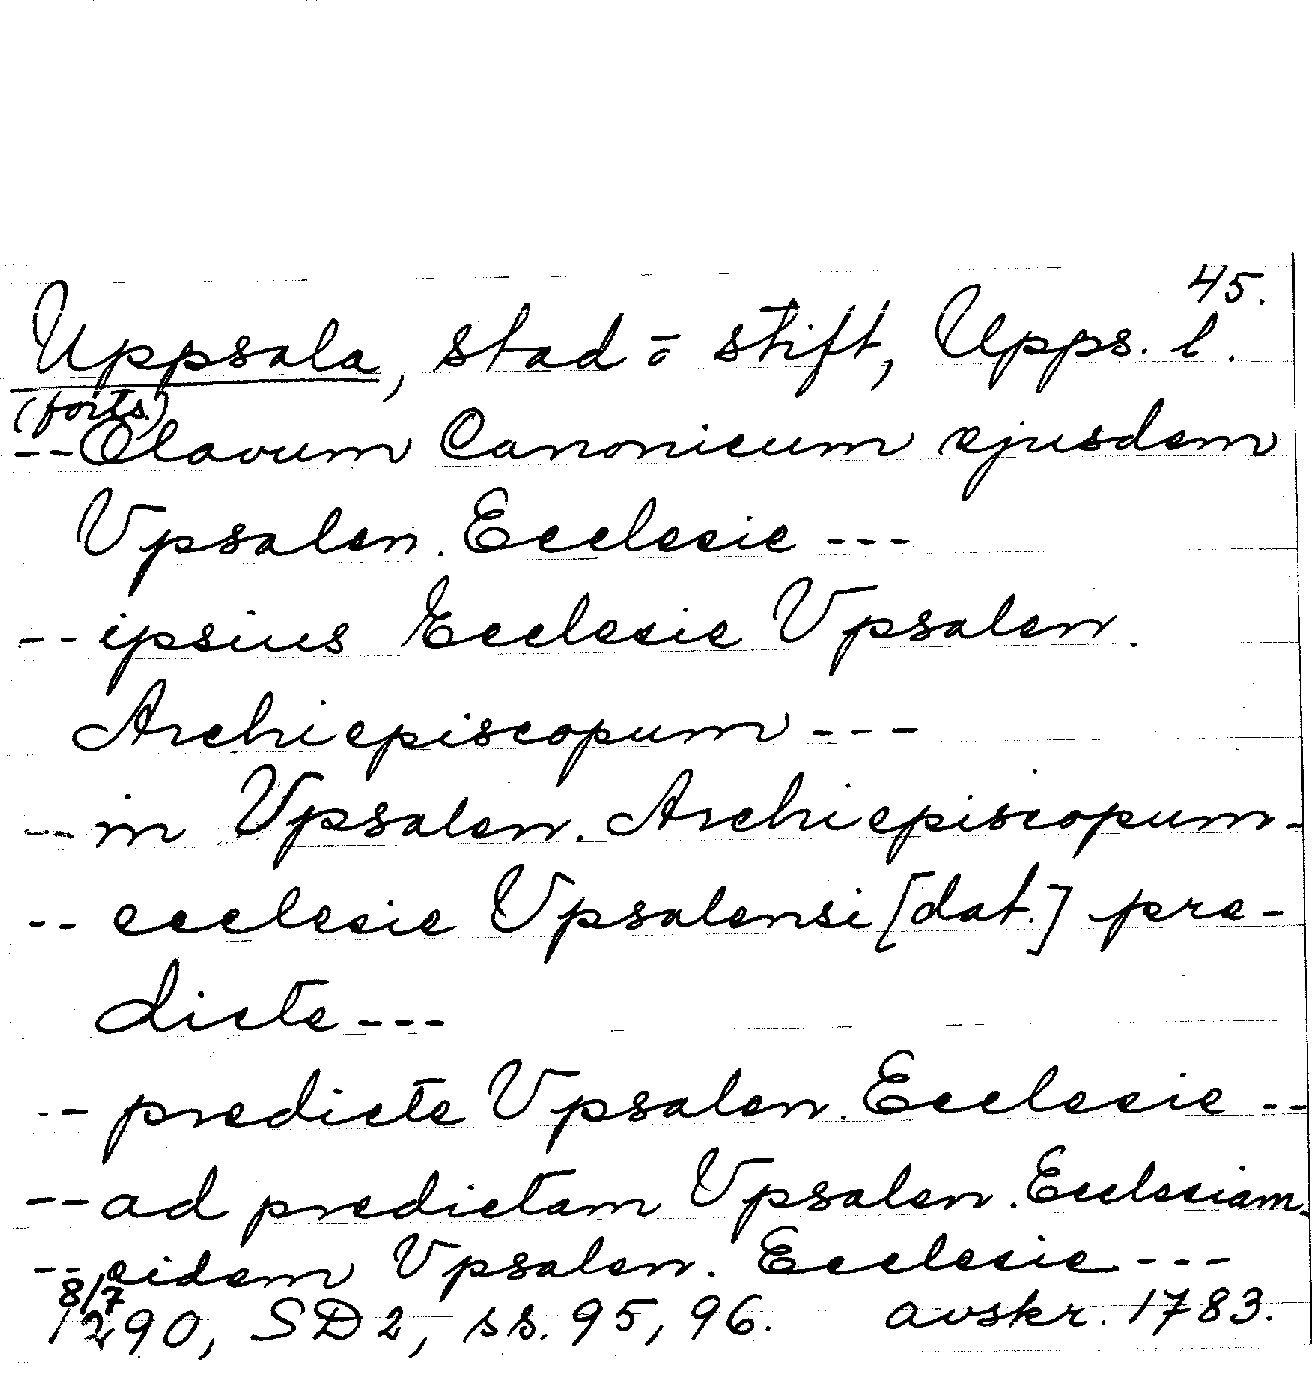 45.
Uppsala, stad o stift, Upps. l.
(forts.)
-- Olavum Canonicum ejusdem
Vpsalen. Ecclesie ---
-- ipsius Ecclesie Vpsalen.
Archiepiscopum ---
-- in Vpsalen. Archiepiscopum -
-- ecclesie Vpsalensi [dat.] pre-
dicte ---
-- predicte Vpsalen. Ecclesie --
-- ad predictam Vpsalen. Ecclesiam -
-- eidem Vpsalen. Ecclesie ---
8/7
1290, SD 2, ss. 95, 96. avskr. 1783.